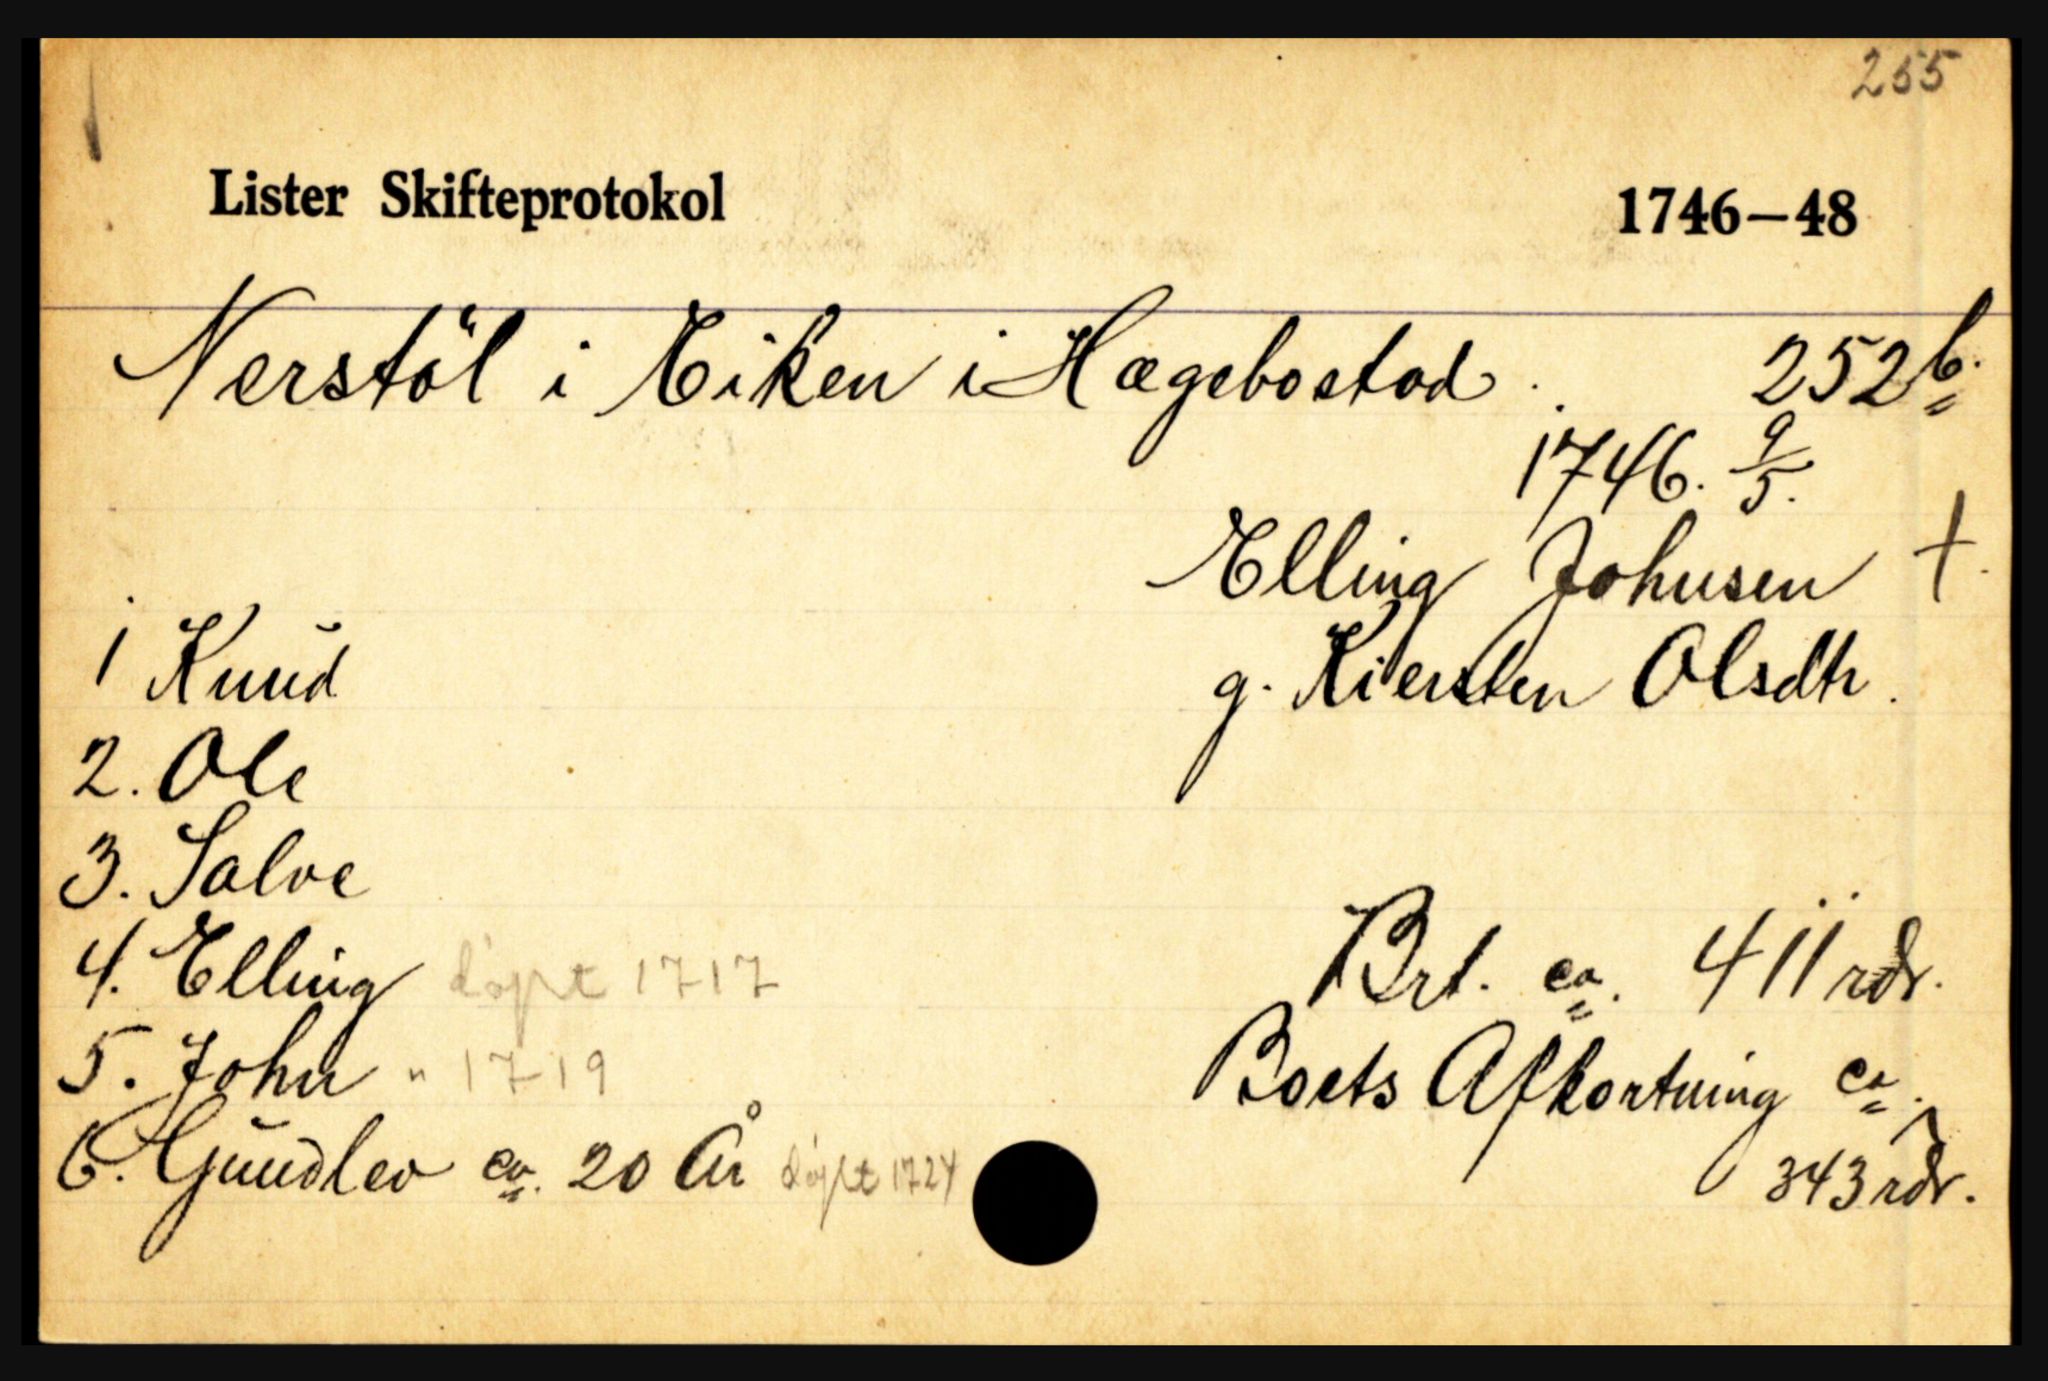 255
Lister Skifteprotokol 1746–48
Nerstöl i Eiken i Hægebostad. 252b.
1746. 9/5.
Elling Johnsen †.
1 Knud g. Kiersten Olsdtr.
2. Ole
3. Salve
4. Elling døpt 1717 Brt. ca. 411 rdr.
5. John " 1719 Boets Afkortning ca.
6. Gundlev ca. 20 År døpt 1724 343 rdr.